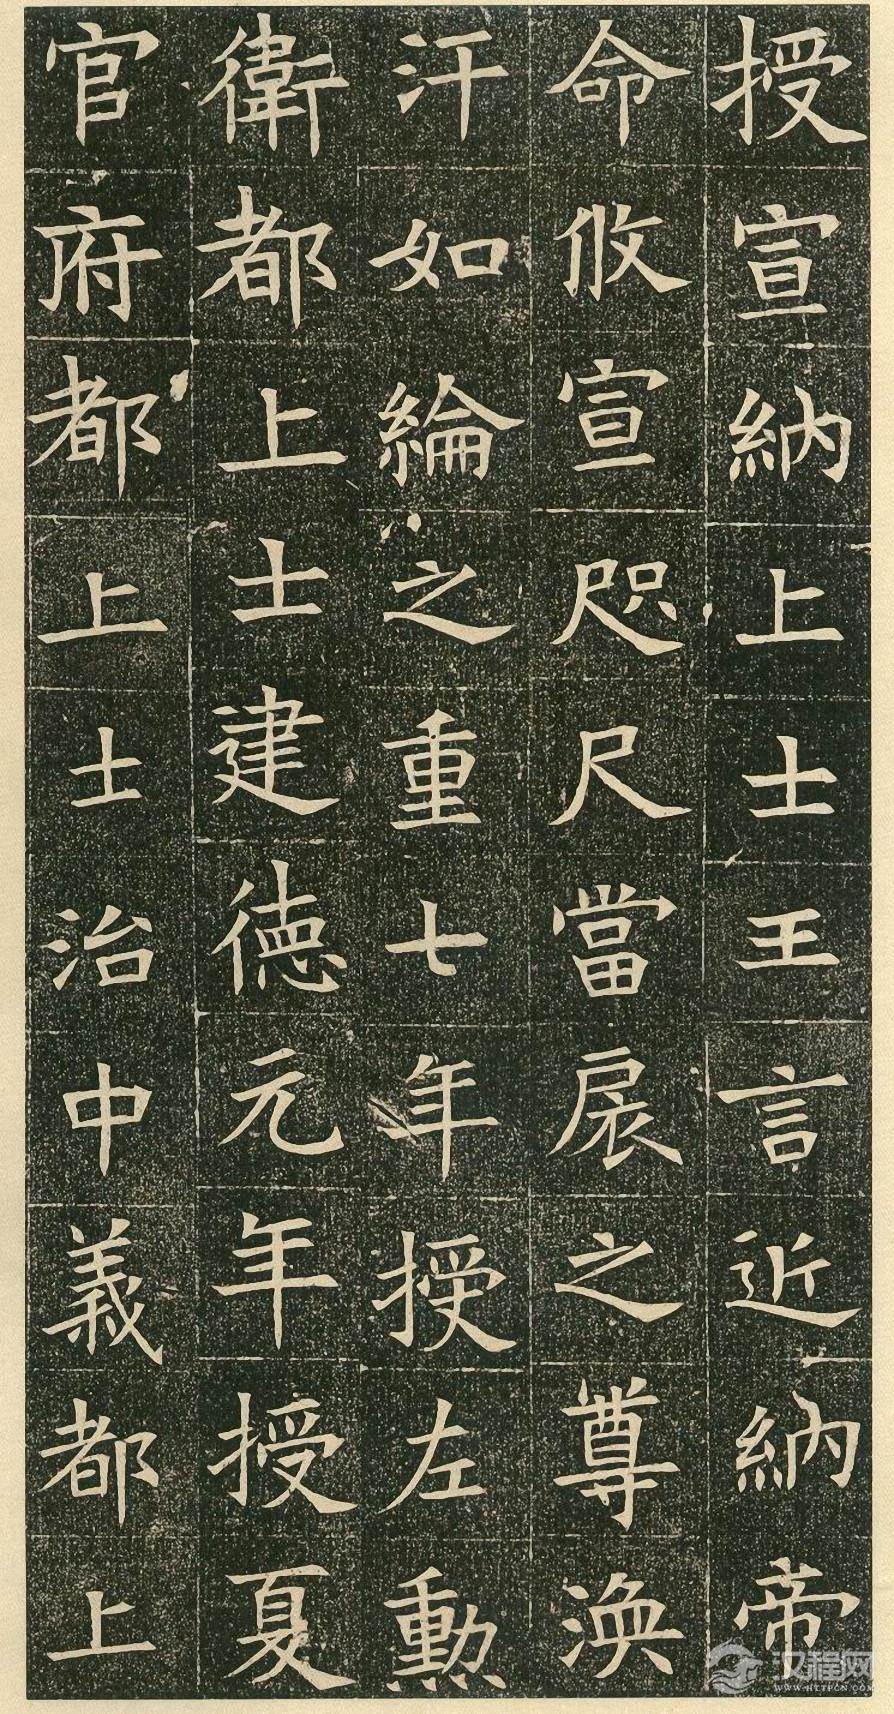 授宣納上士王言近納帝
命攸宣咫尺當扆之尊渙
汗如綸之重七年授左勳
衛都上士建德元年授夏
官府都上士治中義都上
汉程网
WWW.HTTPCN.COM